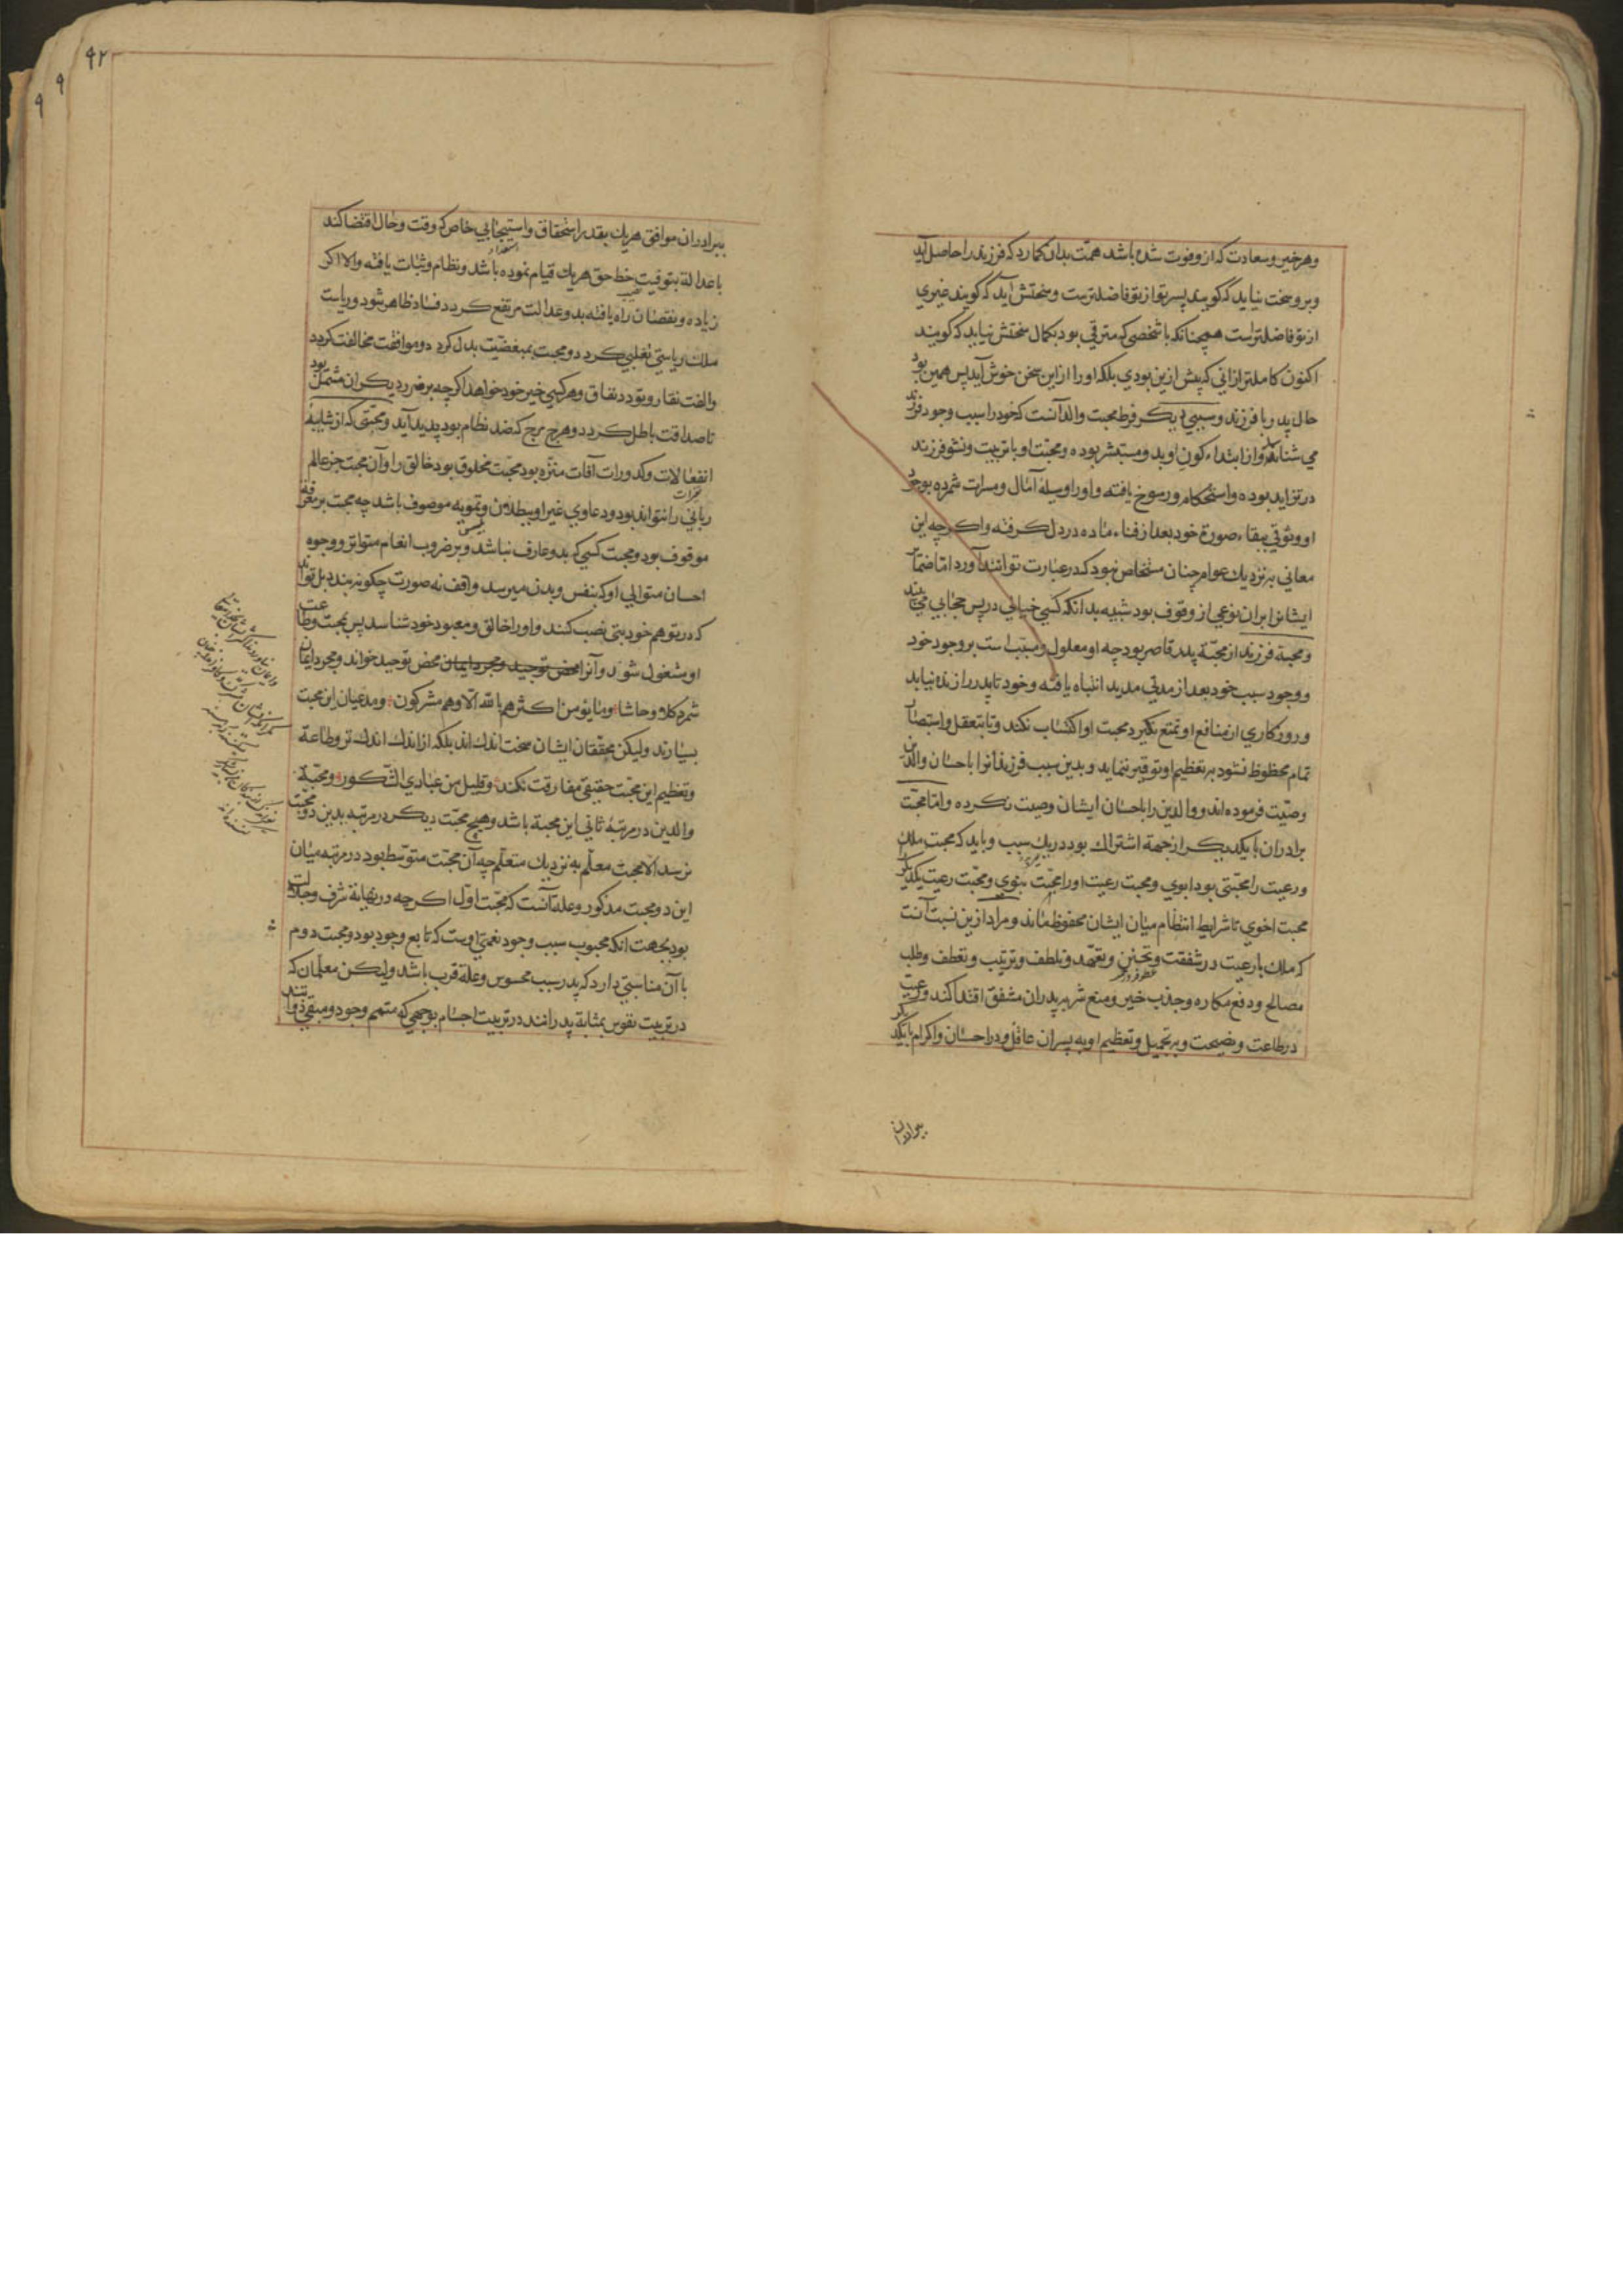 وهر خیر و سعادت که از و فوت شده باشد همّت بدان کمارد که فرزند را حاصل آید
و برو سخت نیاید که کویند پسر تو از تو فاضلترست و سختش آید که کویند غیری
از تو فاضلترست همچنانکه با شخصی که مترقی بود بکمال سختش نیاید که کویند
اکنون کاملتر ازانی که پیش ازین بودی بلکه او را از این سخن خوش آید پس همین بود
حال پدر با فرزند و سببی دیکر فرط محبت والد آنست که خود را سبب وجود فرزند
می شناسد و از ابتداء کون او بدو مستبشر بوده و محبّت او با تربیت و نشو فرزند
در تزاید بوده و استحکام و رسوخ یافته و او را وسیلهٔ آمال و مسرات شمرده بوجود
او وثوقی ببقاء صورة خود بعد از فناء ماده در دل کرفته و اکرچه این
معانی به نزدیك عوام چنان مستخلص نبود که در عبارت توانند آورد امّا ضمایر
ایشانرا بران نوعی از وقوف بود شبیه بدانکه کسی خیالی در پس حجابی می بیند
و محبة فرزند از محبّة پدر قاصر بود چه او معلول و مسبّب است بر وجود خود
و وجود سبب خود بعد از مدتی مدید انتباه یافته و خود تا پدر را زنده نیابد
و روزکاری از منافع او تمتع نکیرد محبت او اکتساب نکند و تا بتعقل و استبصار
تمام محظوظ نشود بر تعظیم او توقیر ننماید و بدین سبب فرزندانرا باحسان والدین
وصیّت فرموده اند و والدین را باحسان ایشان وصیت نکرده و امّا محبّت
برادران با یکدیکر از جهة اشتراك بود در یك سبب و باید که محبت ملك
و رعیت را محبّتی بود ابوی و محبت رعیت او را محبّت بنوی و محبّت رعیت یکدیکر
محبت اخوی تا شرایط انتظام میان ایشان محفوظ ماند و مراد ازین نسبت آنست
که ملك با رعیت در شفقت و تحنن و تعهّد و تلطف و تربیت و تعطف و طلب
مصالح و دفع مکاره و جذب خیر و منع شر به پدران مشفق اقتدا کند و رعیت
در طاعت و نصیحت و بر تبجیل و تعظیم او به پسران عاقل و در احسان و اکرام با یکدیکر
ببرادران
۹۲
ببرادران موافق هر یك بقدر استحقاق و استیجابی خاص که وقت و حال اقتضا کند
تا عدالة بتوقیت حظ حق هر یك قیام نموده باشد و نظام و ثبات یافته والا اکر
زیاده و نقصان راه یافته بدو عدالت مرتفع کردد فساد ظاهر شود و ریاست
ملك ریاستی تغلبی کردد و محبت بمبغضیّت بدل کردد و موافقت مخالفت کردد
و الفت نفار و تودّد نفاق و هر کسی خیر خود خواهد اکرچه بر ضرر دیکران مشتمل بود
تا صداقت باطل کردد و هرج مرج که ضد نظام بود پدید آید و محبّتی که از شایبهٔ
انفعالات و کدورات آفات منزّه بود محبّت مخلوق بود خالق را و آن محبت جز عالم
ربانی را نتواند بود و دعاوی غیر او ببطلان و تمویه موصوف باشد چه محبت بر معرفة
موقوف بود و محبت کسی که بدو عارف نباشد و بر ضروب انعام متواتر و وجوه
احسان متوالی او که بنفس و بدن میرسد واقف نه صورت چکونه بندد بل تواند
که در توهم خود بتی نصب کنند و او را خالق و معبود خود شناسد پس بمحبت و طاعت
او مشغول شود و آنرا محض توحید و مجرد ایمان محض توحید خواند و مجرد ایمان
شمرد کلا و حاشا وما یؤمن اکثرهم بالله الا وهم مشرکون و مدعیان این محبت
بسیارند ولیکن محققان ایشان سخت اندك اند بلکه از اندك اندك تر و طاعة
و تعظیم این محبّت حقیقی مفارقت نکند وقلیل من عبادی الشّکور و محبّة
والدین در مرتبهٔ ثانی این محبة باشد و هیچ محبّت دیکر در مرتبه بدین دو محبّت
نرسد الا محبت معلّم به نزدیك متعلّم چه آن محبّت متوسّط بود در مرتبه میان
این دو محبت مذکور و علّت آنست که محبّت اوّل اکرچه در نهایة شرف و جلالت
بود بجهت انکه محبوب سبب وجود نعمتی اوست که تابع وجود بود و محبت دوم
با آن مناسبتی دارد که پدر سبب محسوس و علّة قرب باشد ولیکن معلّمان که
در تربیت نفوس بمثابهٔ پدرانند در تربیت اجسام بوجهی که متمم وجود و مبقی ذواتند